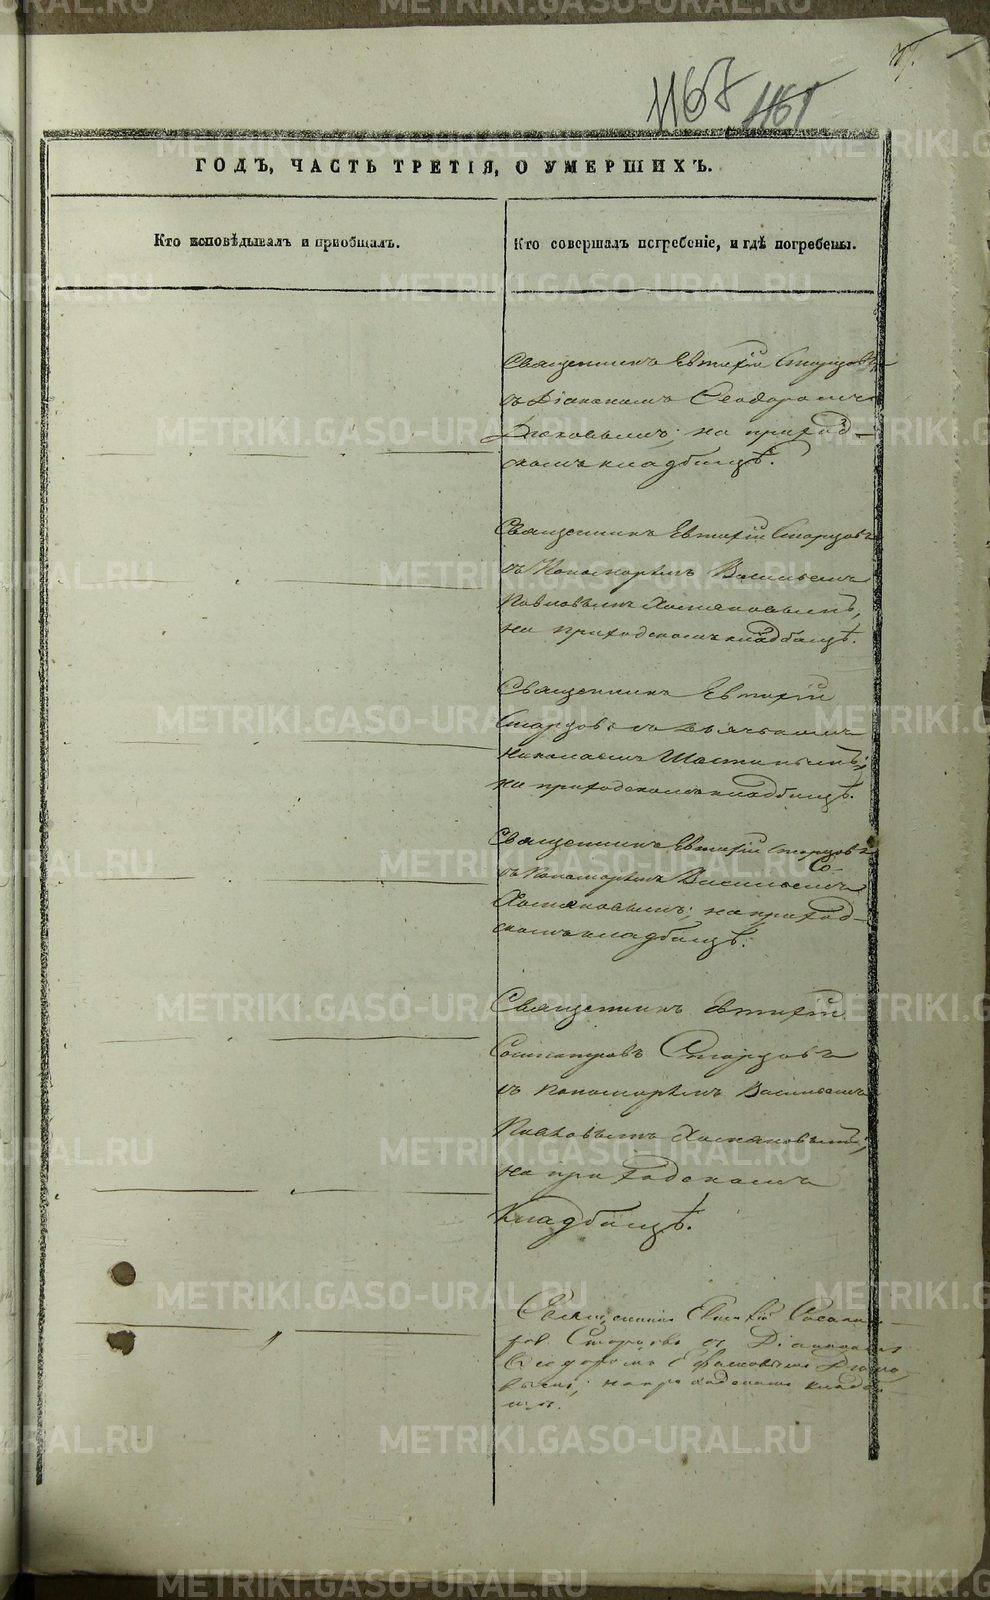 1167 1161
ГОДЪ, ЧАСТЬ ТРЕТІЯ, О УМЕРШИХЪ.
Кто исповѣдывалъ и приобщалъ.
Кто совершалъ погребеніе, и гдѣ погребены.
Священникъ Евтихій Старцовъ
съ Діакономъ Ѳеодоромъ
на приход-
скомъ кладбищѣ.
Священникъ Евтихій Старцовъ
съ Пономарёмъ Васильемъ
Хомяковымъ,
на приходскомъ кладбищѣ.
Священникъ Евтихій
Старцовъ съ дьячкомъ
Николаемъ
на приходскомъ кладбищѣ.
Священникъ Евтихій Старцовъ
съ Пономарёмъ Васильемъ
Хомяковымъ; на приход-
скомъ кладбищѣ.
Священникъ Евтихій
Старцовъ
съ пономарёмъ Васильемъ
Хомяковымъ;
на приходскомъ
кладбищѣ.
Священникъ Евтихій
Старцовъ съ Діакономъ
Ѳеодоромъ
на приходскомъ кладби-
щѣ.
METRIKI.GASO-URAL.RU